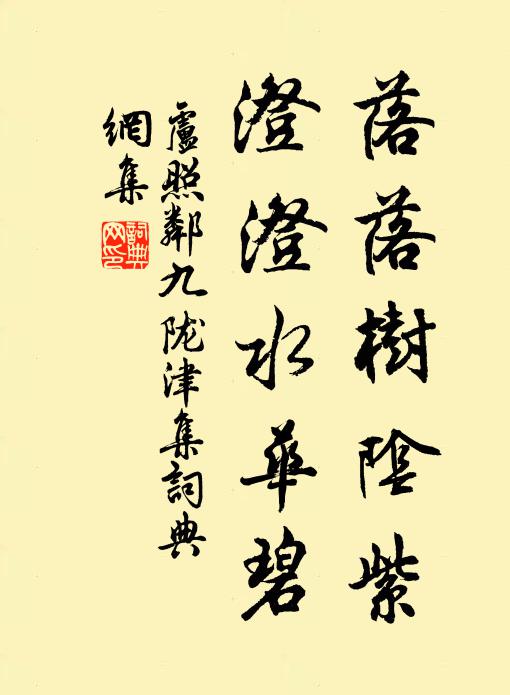 落落樹陰紫
澄澄水華碧
盧照鄰九陇津集詞典
網集
詞典
网印